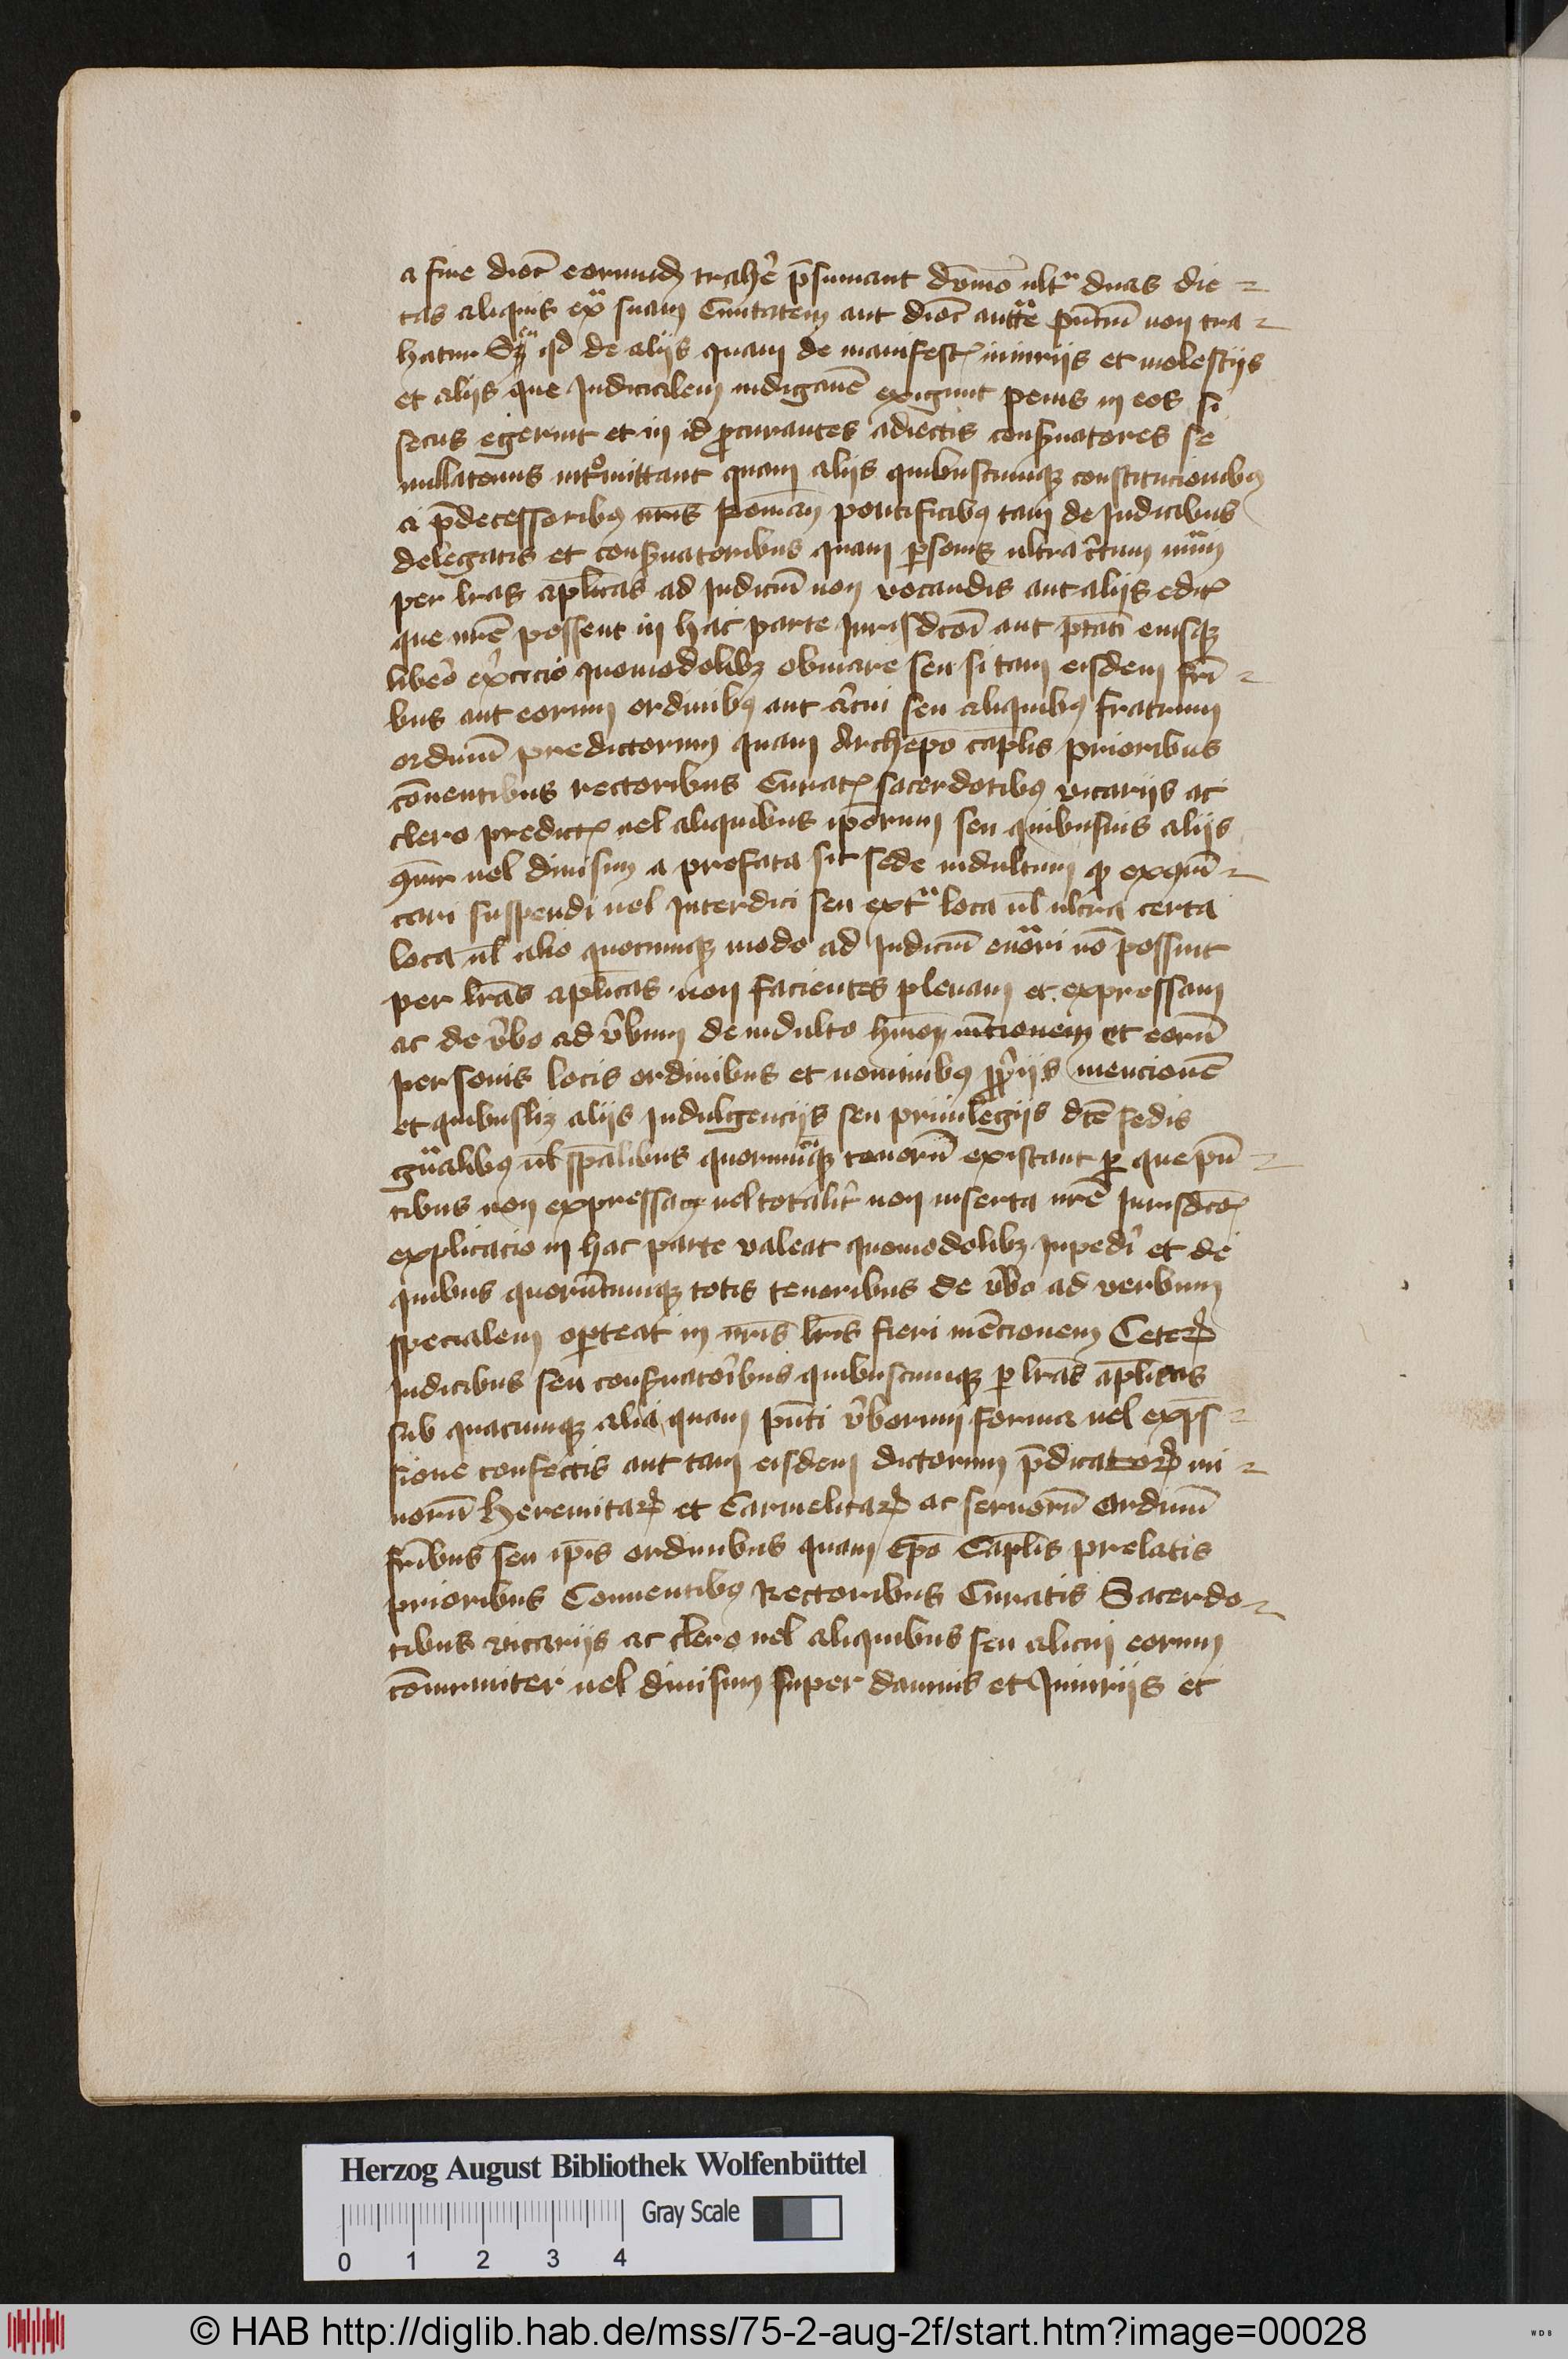 a fine dioc̄ eorundē trahe᷑ p̄sumant dūmo᷑ ultᵃ duas die-
tas aliquis exᵃ suam Ciuitatem aut dioc̄ auctᵗᵉ pn̄tiū non tra-
hatur qd de alijs quam de manifest᷑ iniurijs et molestijs
et alijs que Judicialem indiganē exigunt penis in eos si
secus egerint et in id ꝓcurantes adiectis conẜuatores se
nullatenus intᵒmittant quam alijs quibuscunqꝫ constitucionibꝰ
a p̄decessoribꝰ nr̄is Roman̄ pontificibꝰ tam de Judicibus
delegatis et conẜuatoribus quam ꝑsonis ultra c᷑tum nūm
per lr̄as aplicas ad Judiciū non vocandis aut alijs edit᷑
que nr̄e possent in hac parte Jurisdcōi aut ptāti eiusqꝫ
libe᷑o ex᷑cicio quomodolibꝫ obuiare seu si tam eisdem fr̄i-
bus aut eorum ordinibꝰ aut a᷑cui seu aliquibꝰ fratrum
ordinū predictorum quam Archiepō capl̄is prioribus
cōuentibus rectoribus Curat᷑ sacerdotibꝰ vicarijs ac
clero predict᷑ uel aliquibus ip̄orum seu quibusuis alijs
ꝯmūr uel diuisim a prefata sit sede indultum ꝙ excōi-
cari suspendi uel Interdici seu extᵃ loca ul̄ ultra certa
loca ul̄ alio quocunqꝫ modo ad Judiciū euōri nō possint
per lr̄as aplicas non facientes plenam et expressam
ac de v᷑bo ad v᷑bum de indulto hm̄oi mn̄cionem et eorū
personis locis ordinibus et nominibꝰ ꝓp᷑ijs mencionē
et quibuslꝫ alijs Indulgencijs seu priuilegijs dcē sedis
gn̄alibꝰ ul̄ spālibus quorumcūqꝫ tenorū existant ꝑ que pn̄-
tibus non expressam uel totalit᷑ non inserta nr̄e Jurisdcōis
explicacio in hac parte valeat quomodolibꝫ Inpedi᷑ et de
quibus quorūcunqꝫ totis tenoribus de v᷑bo ad verbum
specialem oꝑteat in nr̄is lr̄is fieri mēcionem Ceteꝝ
Judicibus seu conẜuatoribus quibuscunqꝫ ꝑ lr̄as apl̄icas
sub quacunqꝫ alia quam pn̄ti v᷑borum forma uel exp̄s-
sione confectis aut tam eisdem dictorum p̄dicatoꝝ mi-
norū Heremitaꝝ et Carmelitaꝝ ac seruorū Ordinū
fr̄ibus seu ip̄is ordinibus quam Ep̄o Capl̄is prelatis
prioribus Conuentibꝰ Rectoribus Curatis Sacerdo-
tibus vicarijs ac clero uel aliquibus seu alicui eorum
cōmuniter uel diuisim super dampnis et Iniurijs et
Herzog August Bibliothek Wolfenbüttel
Gray Scale
0 1 2 3 4
© HAB http://diglib.hab.de/mss/75-2-aug-2f/start.htm?image=00028
WDB